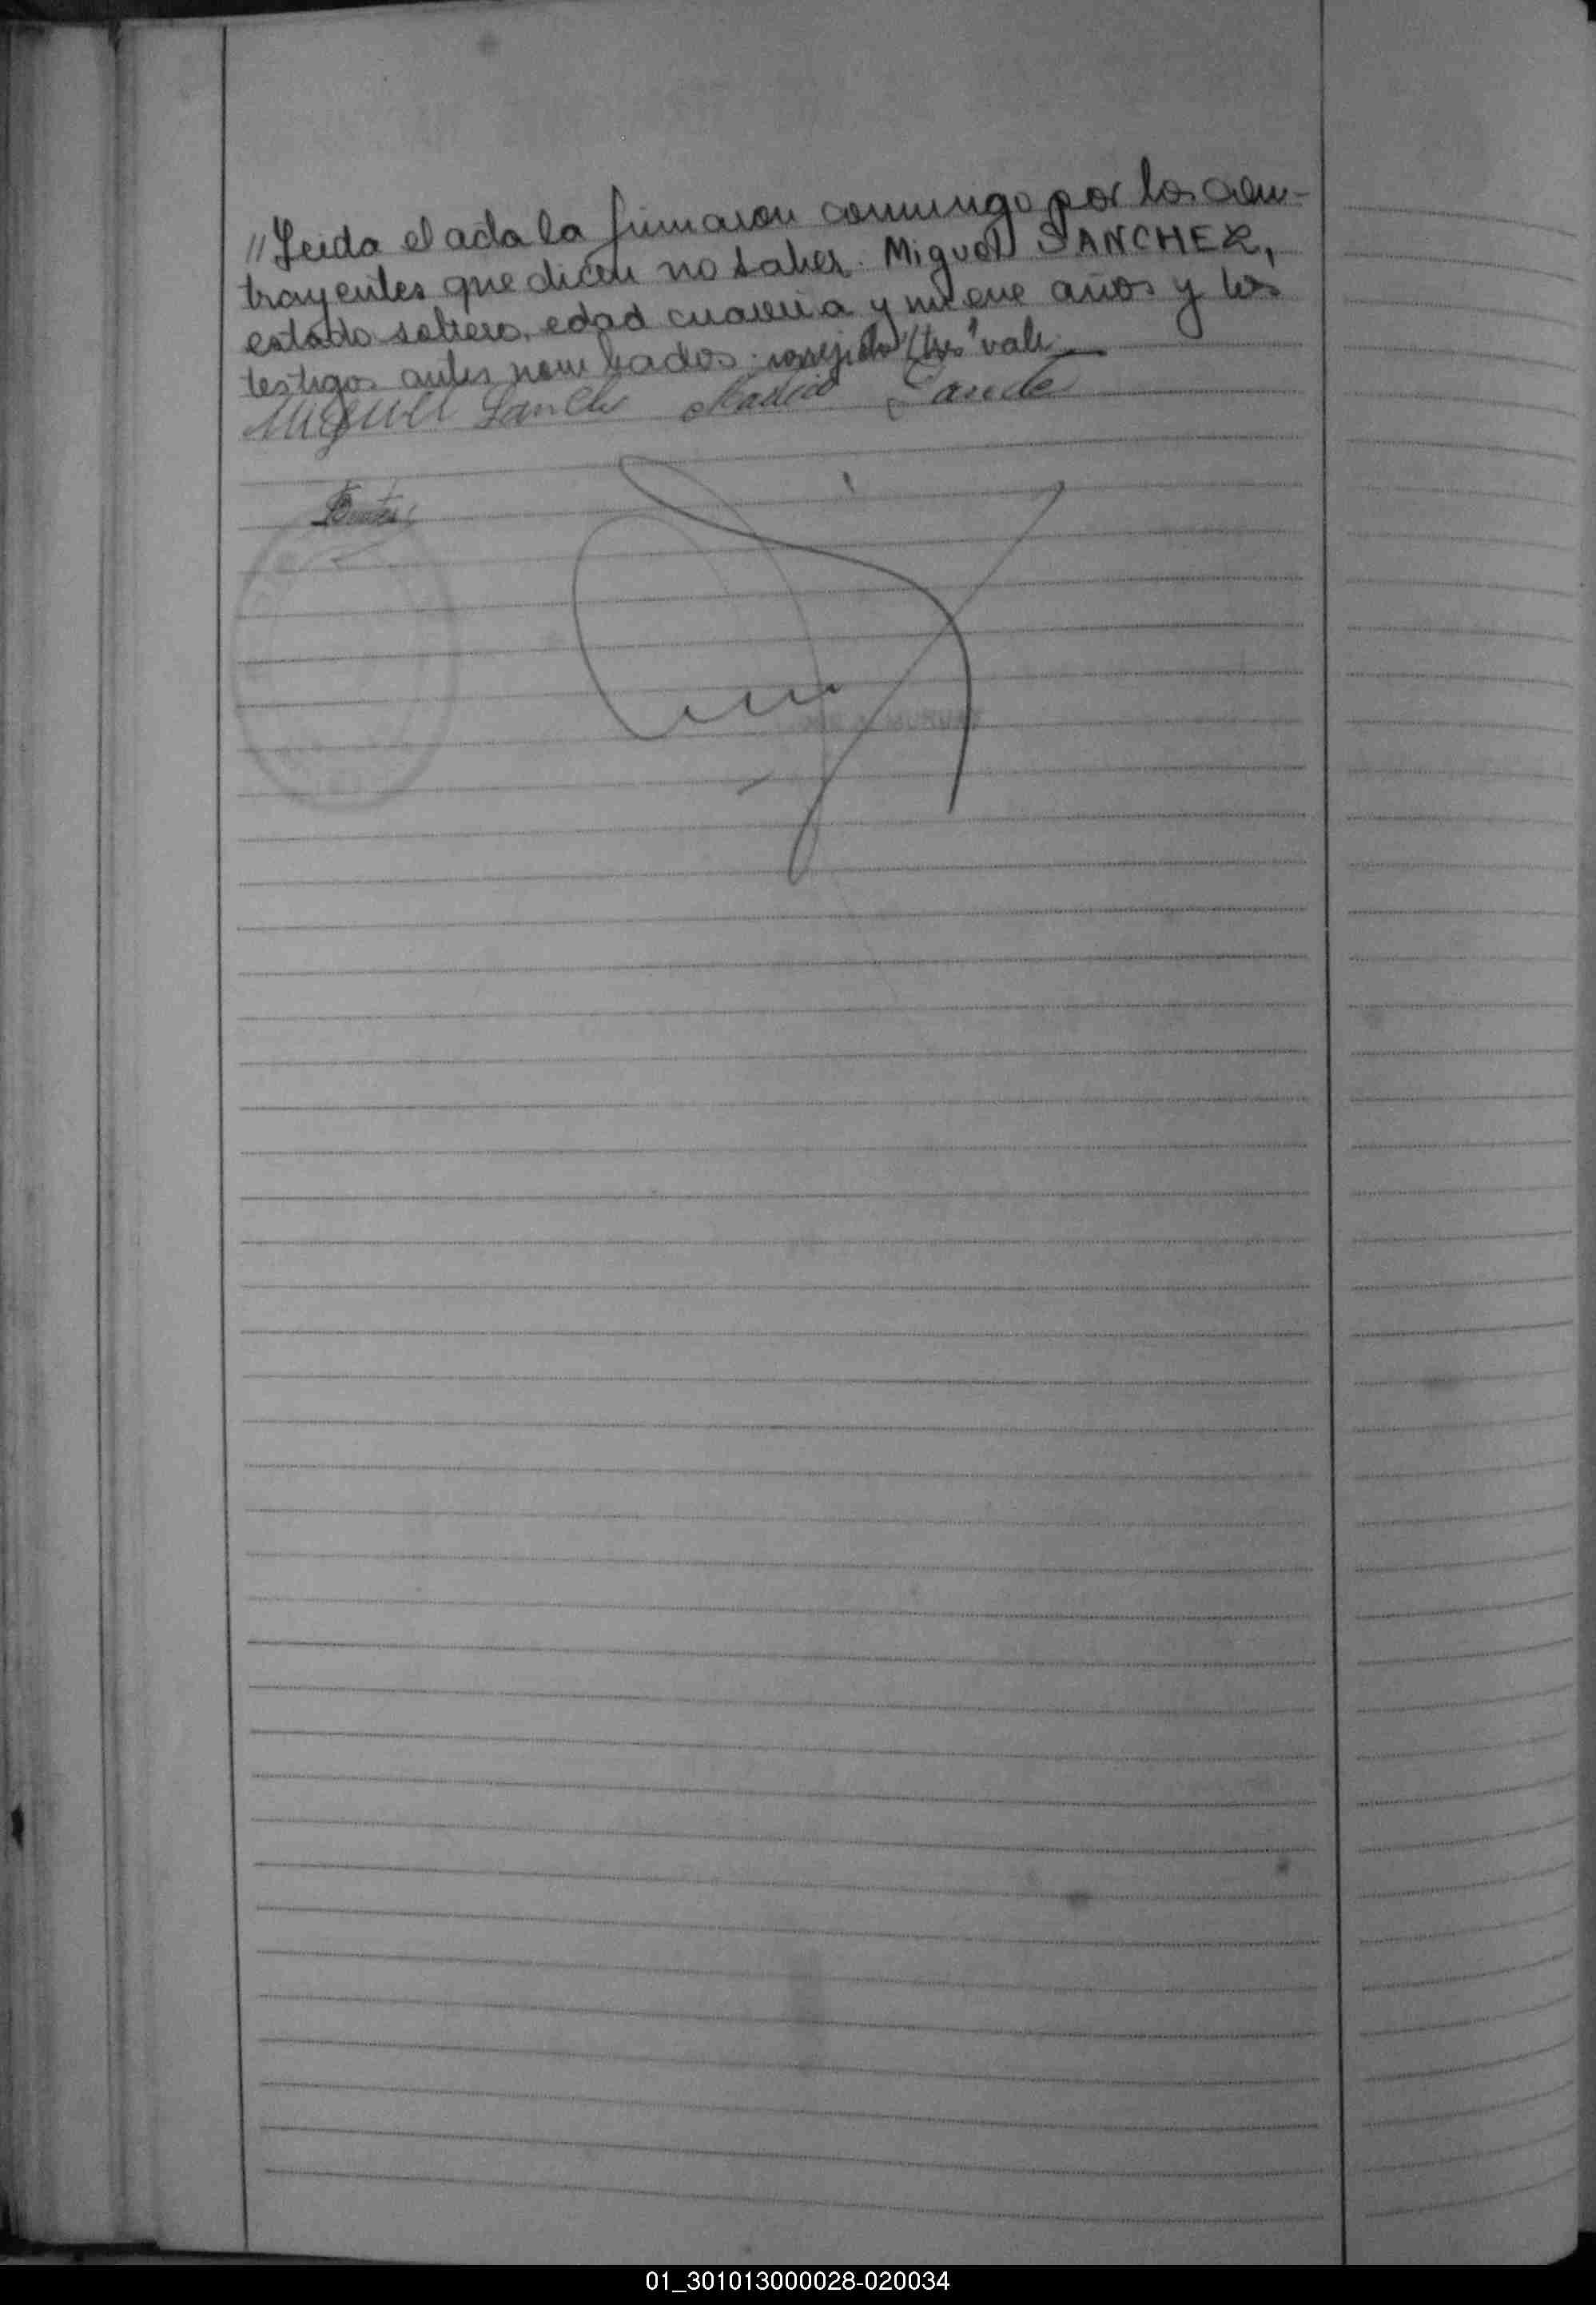 "Leida el acta la firmaron conmingo por los con-
trayentes que dicen no saber. Miguel SANCHEZ,
estado soltero, edad cuarenta y nueve años y los
testigos antes nombrados. corregido "tres" vale.
Miguel Sanche
01_301013000028-020034